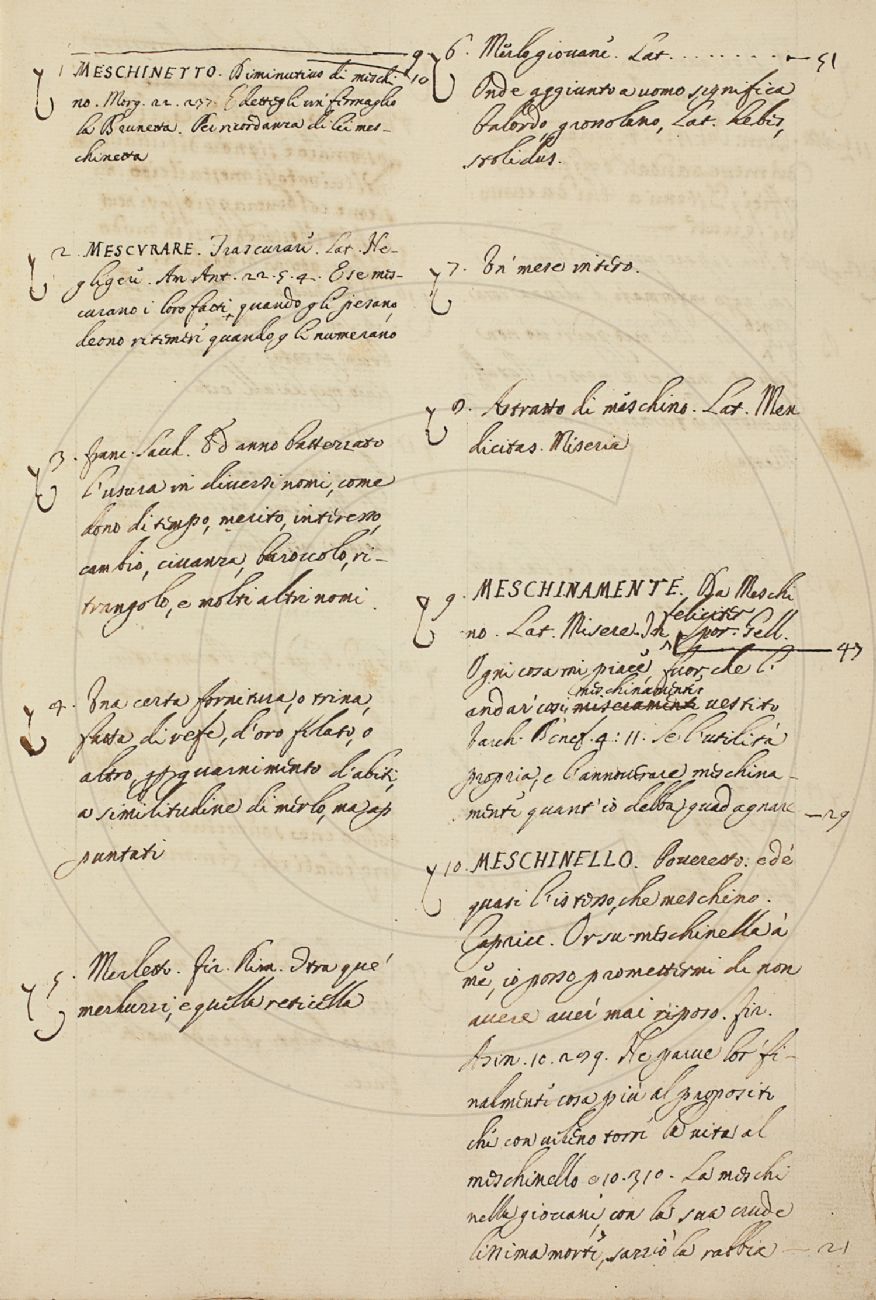 9
1 MESCHINETTO. Diminutivo di meschi- 10
no. Morg. 22. 237. E dettegli un' fermaglio
la Brunetta. Per ricordanza di lei mes-
chinetta
2. MESCVRARE. Trascurare. Lat. Ne-
gligere. Am. Ant. 22. 5. 4. E se mis-
curano i loro fatti, quando gli pesano,
deono ritemere quando gli numerano
3. Franc. Sacch. Ed anno battezzato
l'usura in diversi nomi, come
dono di tempo, merito, interesso,
cambio, civanza, baroccolo, ri-
trangolo, e molti altri nomi.
4. Una certa fornitura, o trina,
fatta di refe, d'oro filato, o
altro, per guarnimento d'abiti,
a similitudine di merlo, ma
puntati
5. Merletto. Fir. Rim. Otra que'
merluzzi, e quella reticella
6. Merlo giovane. Lat. . . . . . . . . 51
Onde aggiunto a uomo significa
balordo, grossolano, Lat. hebes,
stolidus.
7. Un' mese intero.
8. Astratto di meschino. Lat. Men
dicitas. Miseria
9. MESCHINAMENTE. Da Meschi
no. Lat. Misere. In feliciter Spor. Gell. 47
Ogni cosa mi piace, fuor, che l'
andar' così meschinamente vestito
Varch. Benef. 4. 11. Se l'utilità
propria, e l'annoverare meschina-
mente quant' io debba guadagnare 29
10. MESCHINELLO. Poveretto. ed è
quasi l'istesso, che meschino.
Capricc. Or su meschinella à
me, io posso promettermi di non
avere aver mai riposo. Fir.
Asin. 10. 299. Ne parve lor' fi-
nalmente cosa più al proposito
che con veleno torre la vita al
meschinello e 10. 310. La meschi
nella giovane, con la sua crude
lissima morte, saziò la rabbia 21